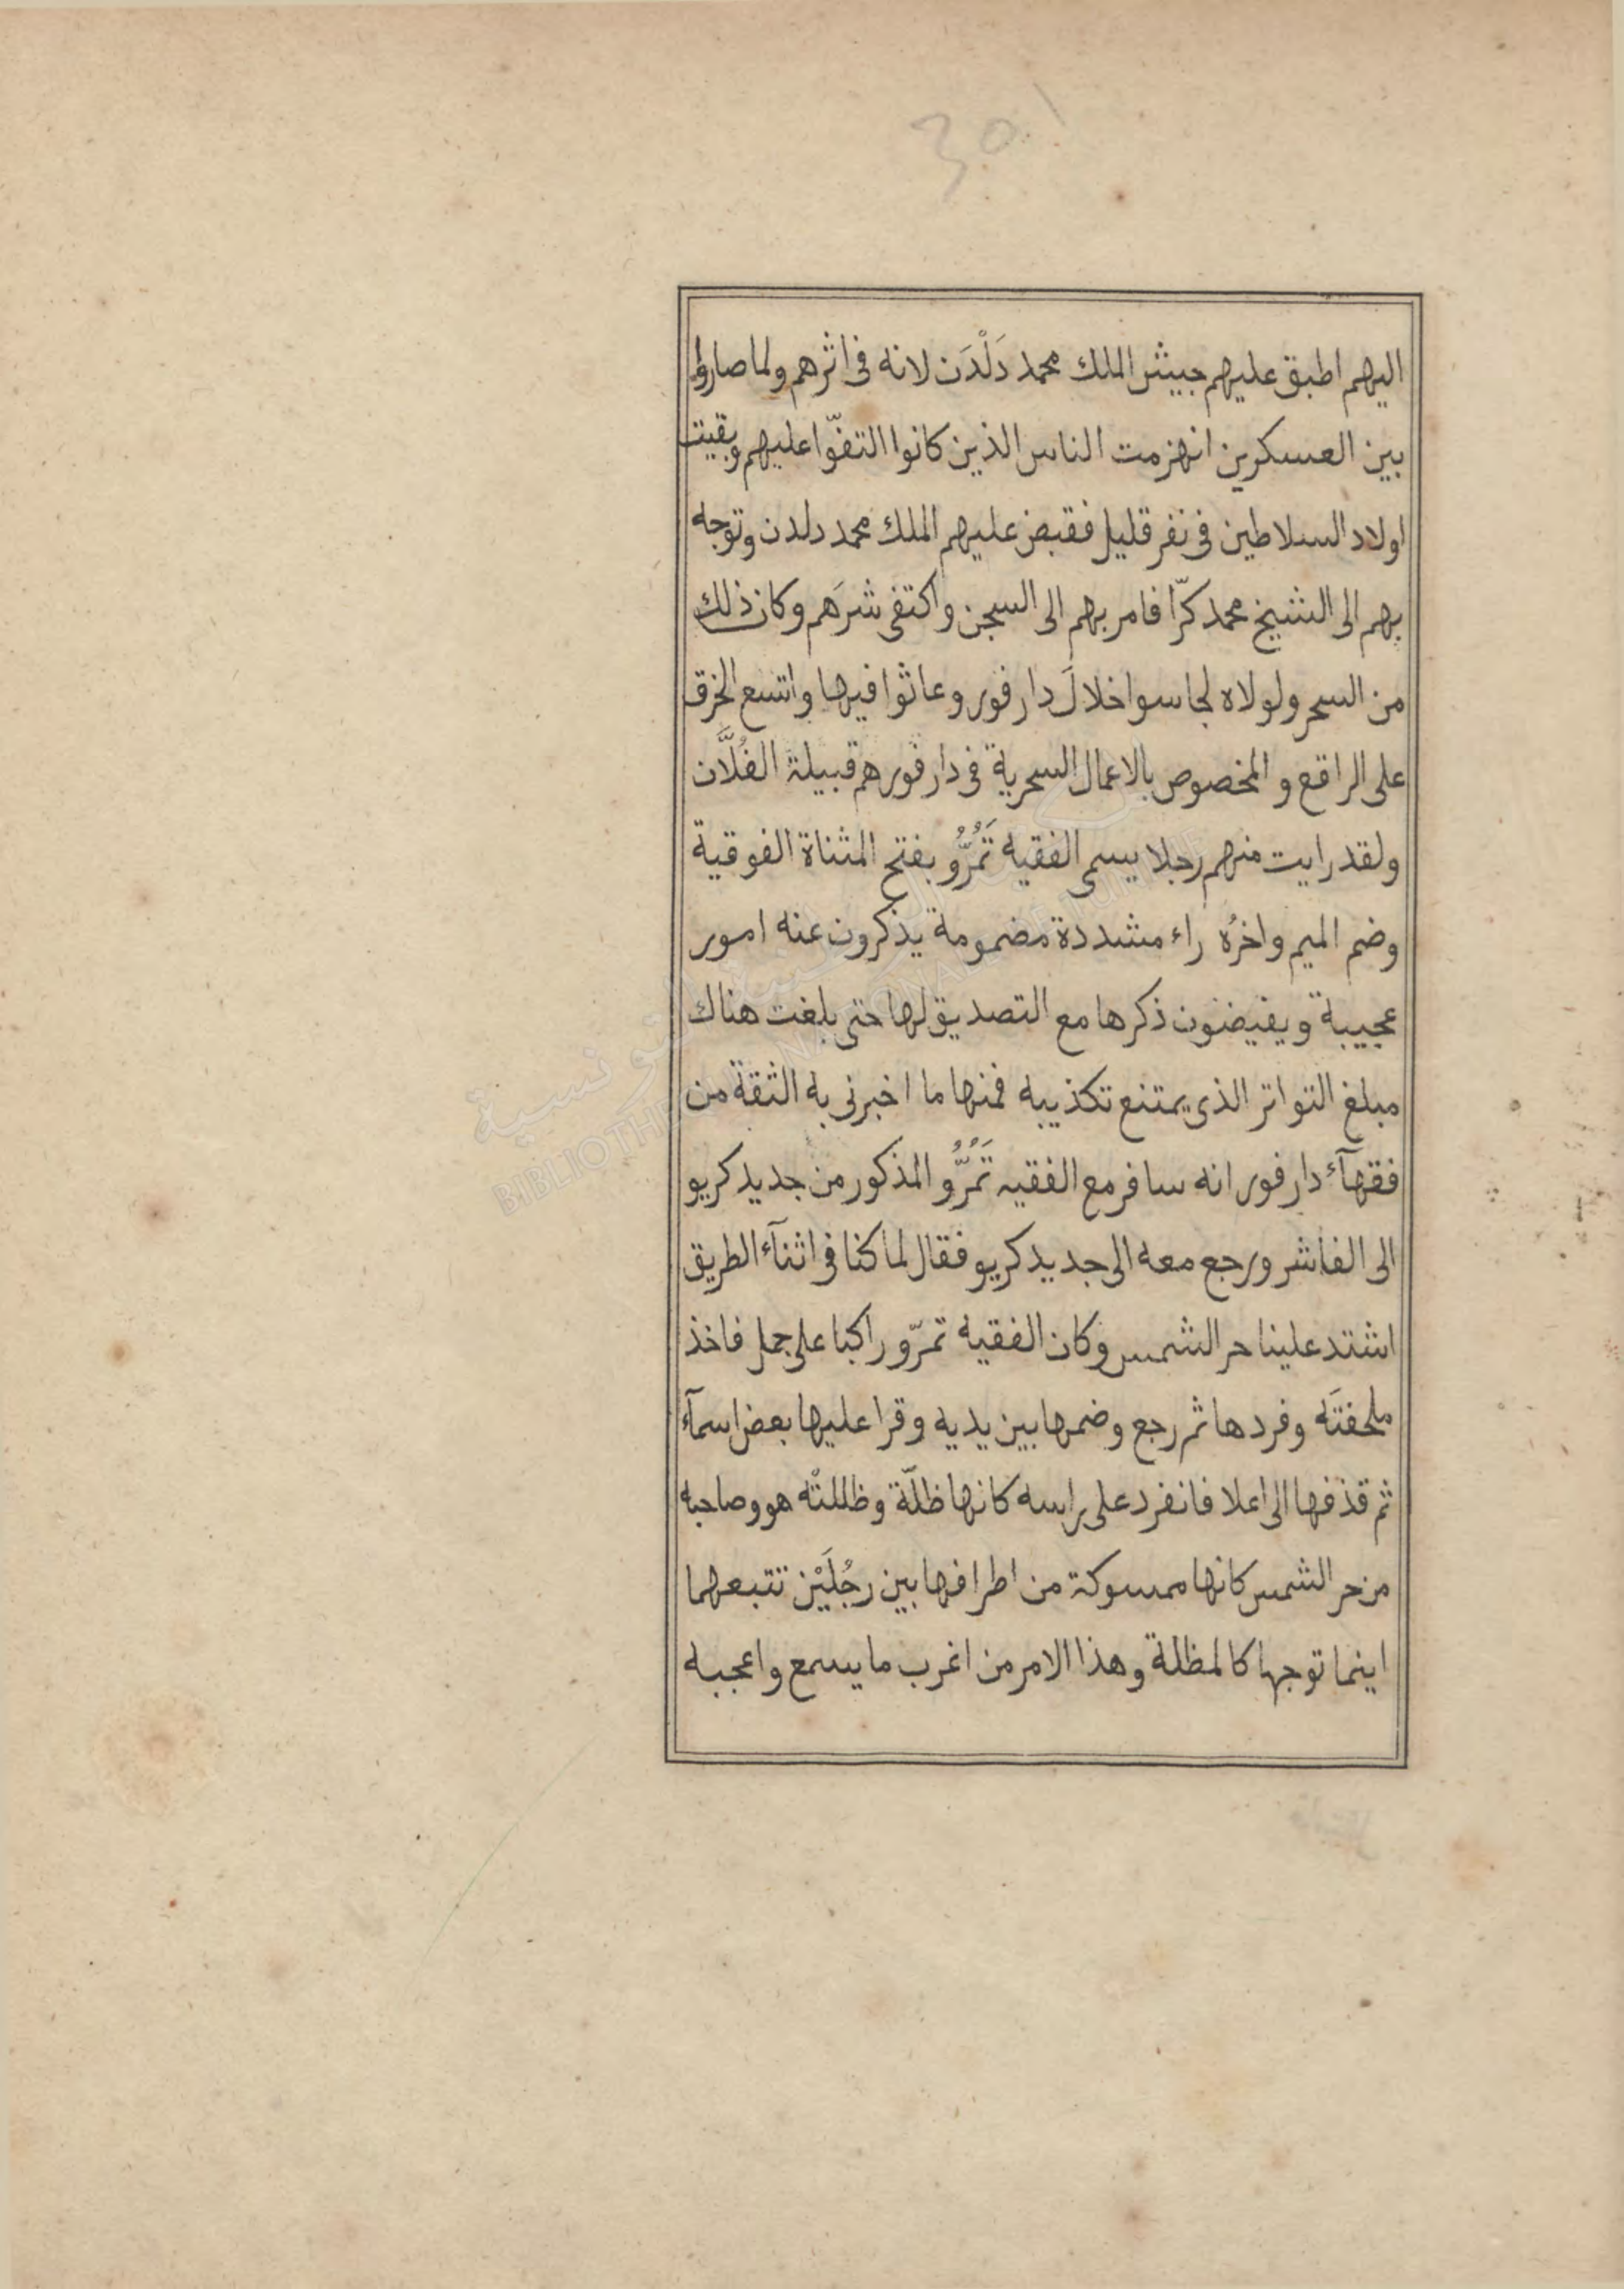 301
اليهم اطبق عليهم جيش الملك محمد دَلْدَن لانه فى اثرهم ولما صاروا
بين العسكرين انهزمت الناس الذين كانوا التفّوا عليهم وبقيت
اولاد السلاطين فى نفر قليل فقبض عليهم الملك محمد دلدن وتوجه
بهم الى الشيخ محمد كرّا فامر بهم الى السجن واكتفى شرَهم وكان ذلك
من السحر ولولاه لجاسوا خلالَ دارفور وعاثوا فيها واتسع الخرق
على الراقع والمخصوص بالاعمال السحرية فى دارفور هم قبيلة الفُلَّان
ولقد رايت منهم رجلا يسمى الفقيه تَمُرُّو بفتح المثناة الفوقية
وضم الميم واخرُه راء مشددة مضمومة يذكرون عنه امور
عجيبة ويفيضون ذكرها مع التصديق لها حتى بلغت هناك
مبلغ التواتر الذى يمتنع تكذيبه فمنها ما اخبرنى به الثقة من
فقهآء دارفور انه سافر مع الفقيه تَمُرُّو المذكور من جديد كريو
الى الفاشر ورجع معه الى جديد كريو فقال لما كنا فى اثنآء الطريق
اشتد علينا حر الشمس وكان الفقيه تمرّو راكبا على جمل فاخذ
ملحفتَه وفردها ثم رجع وضمها بين يديه وقرا عليها بعض اسمآء
ثم قذفها الى اعلا فانفرد على راسه كانها ظلّة وظللتْه هو وصاحبه
من حر الشمس كانها ممسوكة من اطرافها بين رجُلَيْن تتبعهما
اينما توجها كالمظلة وهذا الامر من اغرب ما يسمع واعجبه
التونسية
BIBLIOTHEQUE NATIONALE DE TUNISIE